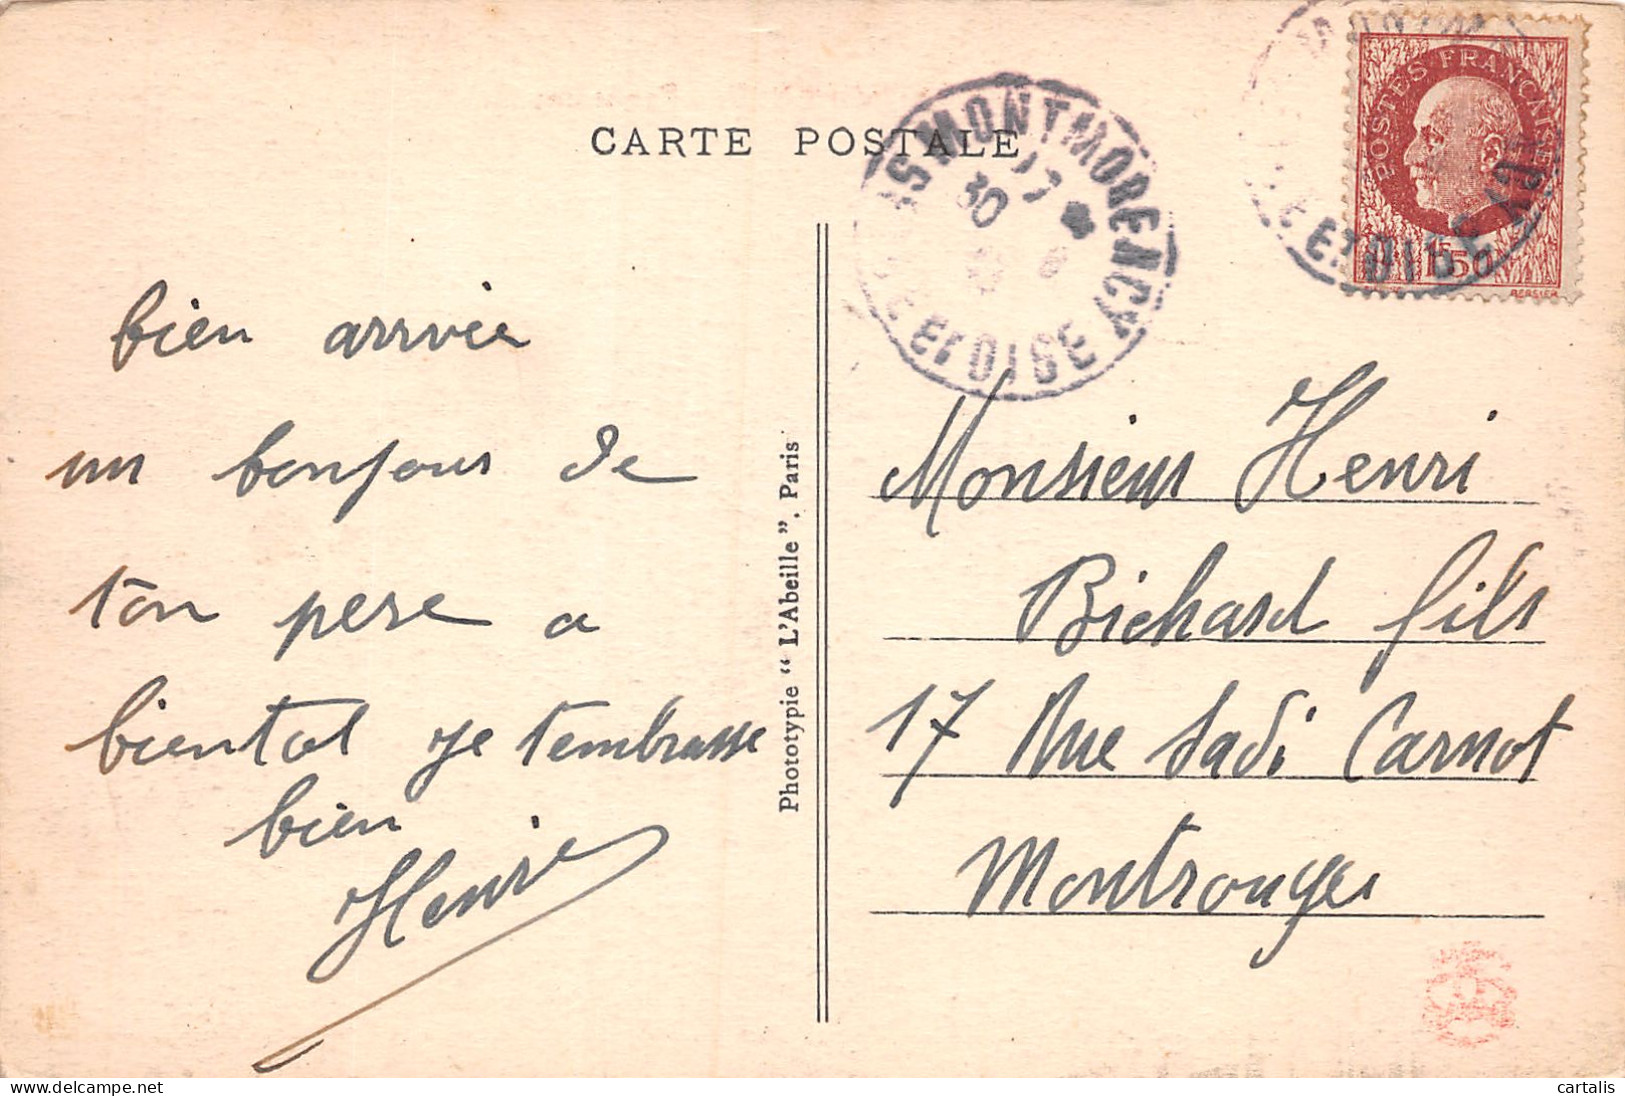 CARTE POSTALE
MONTMORENCY
ET OISE
17 *
30
POSTES FRANÇAISES
1F50
BERSIER
ET OISE
bien arrvée
un bonjour de
ton pere a
bientot je tembrasse
bien
Henri
Phototypie "L'Abeille". Paris
Monsieur Henri
Bichard fils
17 Rue Sadi Carnot
Montrouge
bien arrivé
cartalis